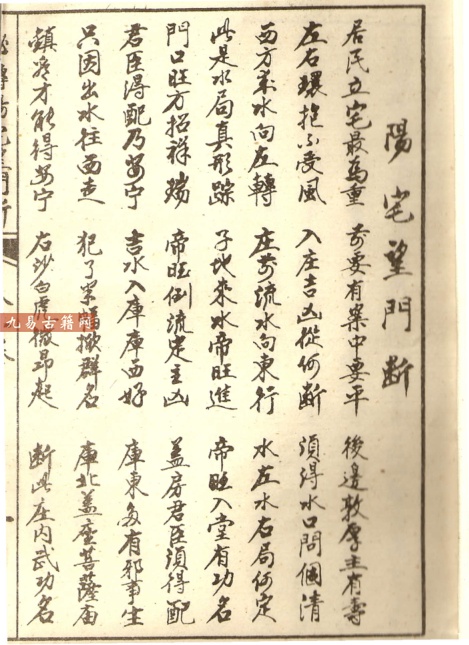 陽宅望門斷
居民立宅最為重 前要有案中要平 後邊敦厚主有壽
左右環抱不受風 入庄吉凶從何斷 須得水口問個清
西方来水向左轉 庄前流水向東行 水左水右局何定
此是水局真形踪 子地来水帝旺進 帝旺入堂有功名
門口旺方招祥瑞 帝旺倒流定主凶 蓋房君臣須得配
君臣得配乃安宁 吉水入庫庫西好 庫東多有邪事生
只因出水往西走 犯了 群名 庫北蓋座菩薩庙
鎮 才能得安宁 右沙白虎微昂起 斷此庄内武功名
陽宅望門断
九易古籍网